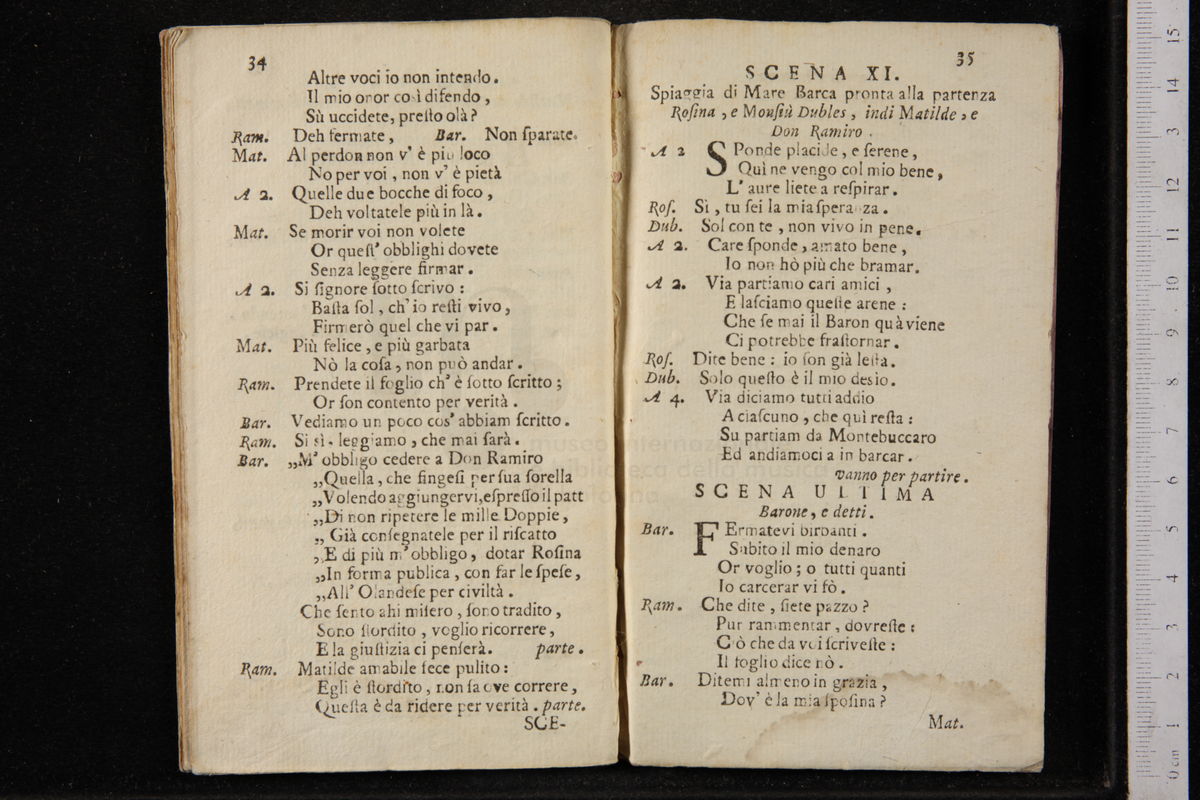 34
Altre voci io non intendo.
Il mio onor così difendo,
Sù uccidete, presto olà?
Ram. Deh fermate, Bar. Non sparate.
Mat. Al perdon non v' è più loco
No per voi, non v' è pietà
A 2. Quelle due bocche di foco,
Deh voltatele più in là.
Mat. Se morir voi non volete
Or quest' obblighi dovete
Senza leggere firmar.
A 2. Si signore sotto scrivo:
Basta sol, ch' io resti vivo,
Firmerò quel che vi par.
Mat. Più felice, e più garbata
Nò la cosa, non può andar.
Ram. Prendete il foglio ch' è sotto scritto;
Or son contento per verità.
Bar. Vediamo un poco cos' abbiam scritto.
Ram. Si sì. leggiamo, che mai sarà.
Bar. „M' obbligo cedere a Don Ramiro
„Quella, che fingesi per sua sorella
„Volendo aggiungervi, espresso il patt
„Di non ripetere le mille Doppie,
„ Già consegnatele per il riscatto
„E di più m' obbligo, dotar Rosina
„In forma publica, con far le spese,
„All' Olandese per civiltà.
Che sento ahi misero, sono tradito,
Sono stordito, voglio ricorrere,
E la giustizia ci penserà. parte.
Ram. Matilde amabile fece pulito:
Egli è stordito, non sa ove correre,
Questa è da ridere per verità. parte.
SCE-
35
SCENA XI.
Spiaggia di Mare Barca pronta alla partenza
Rosina, e Monsiù Dubles, indi Matilde, e
Don Ramiro.
A 2 SPonde placide, e serene,
Quì ne vengo col mio bene,
L' aure liete a respirar.
Ros. Sì, tu sei la mia speranza.
Dub. Sol con te, non vivo in pene.
A 2. Care sponde, amato bene,
Io non hò più che bramar.
A 2. Via partiamo cari amici,
E lasciamo queste arene:
Che se mai il Baron quà viene
Ci potrebbe frastornar.
Ros. Dite bene: io son già lesta.
Dub. Solo questo è il mio desio.
A 4. Via diciamo tutti addio
A ciascuno, che quì resta:
Su partiam da Montebuccaro
Ed andiamoci a in barcar.
vanno per partire.
SCENA ULTIMA
Barone, e detti.
Bar. FErmatevi birbanti.
Subito il mio denaro
Or voglio; o tutti quanti
Io carcerar vi fò.
Ram. Che dite, siete pazzo?
Pur rammentar, dovreste:
Ciò che da voi scriveste:
Il foglio dice nò.
Bar. Ditemi almeno in grazia,
Dov' è la mia sposina?
Mat.